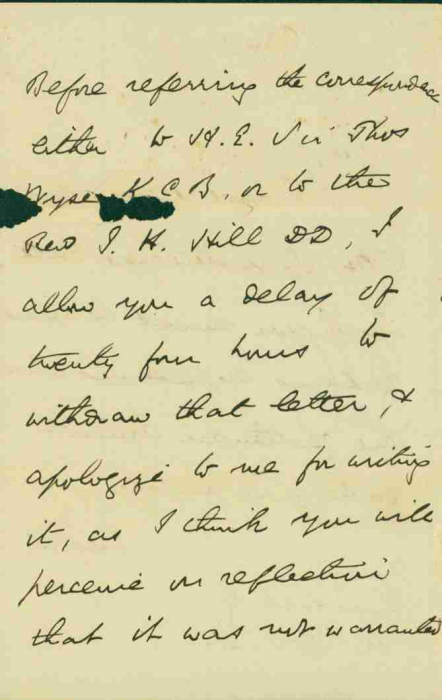 Before referring the correspondence
either to H.E. Sir Thos
Wyse K C B, or to the
Revd J. H. Hill DD, I
allow you a delay of
twenty four hours to
withdraw that letter, &
apologize to me for writing
it, as I think you will
perceive on reflection
that it was not warranted